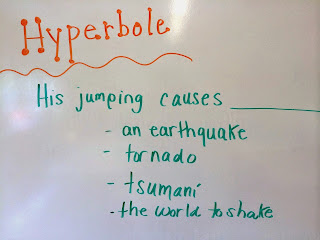 Hyperbole
His jumping causes ______
- an earthquake
- tornado
- tsumani
- the world to shake